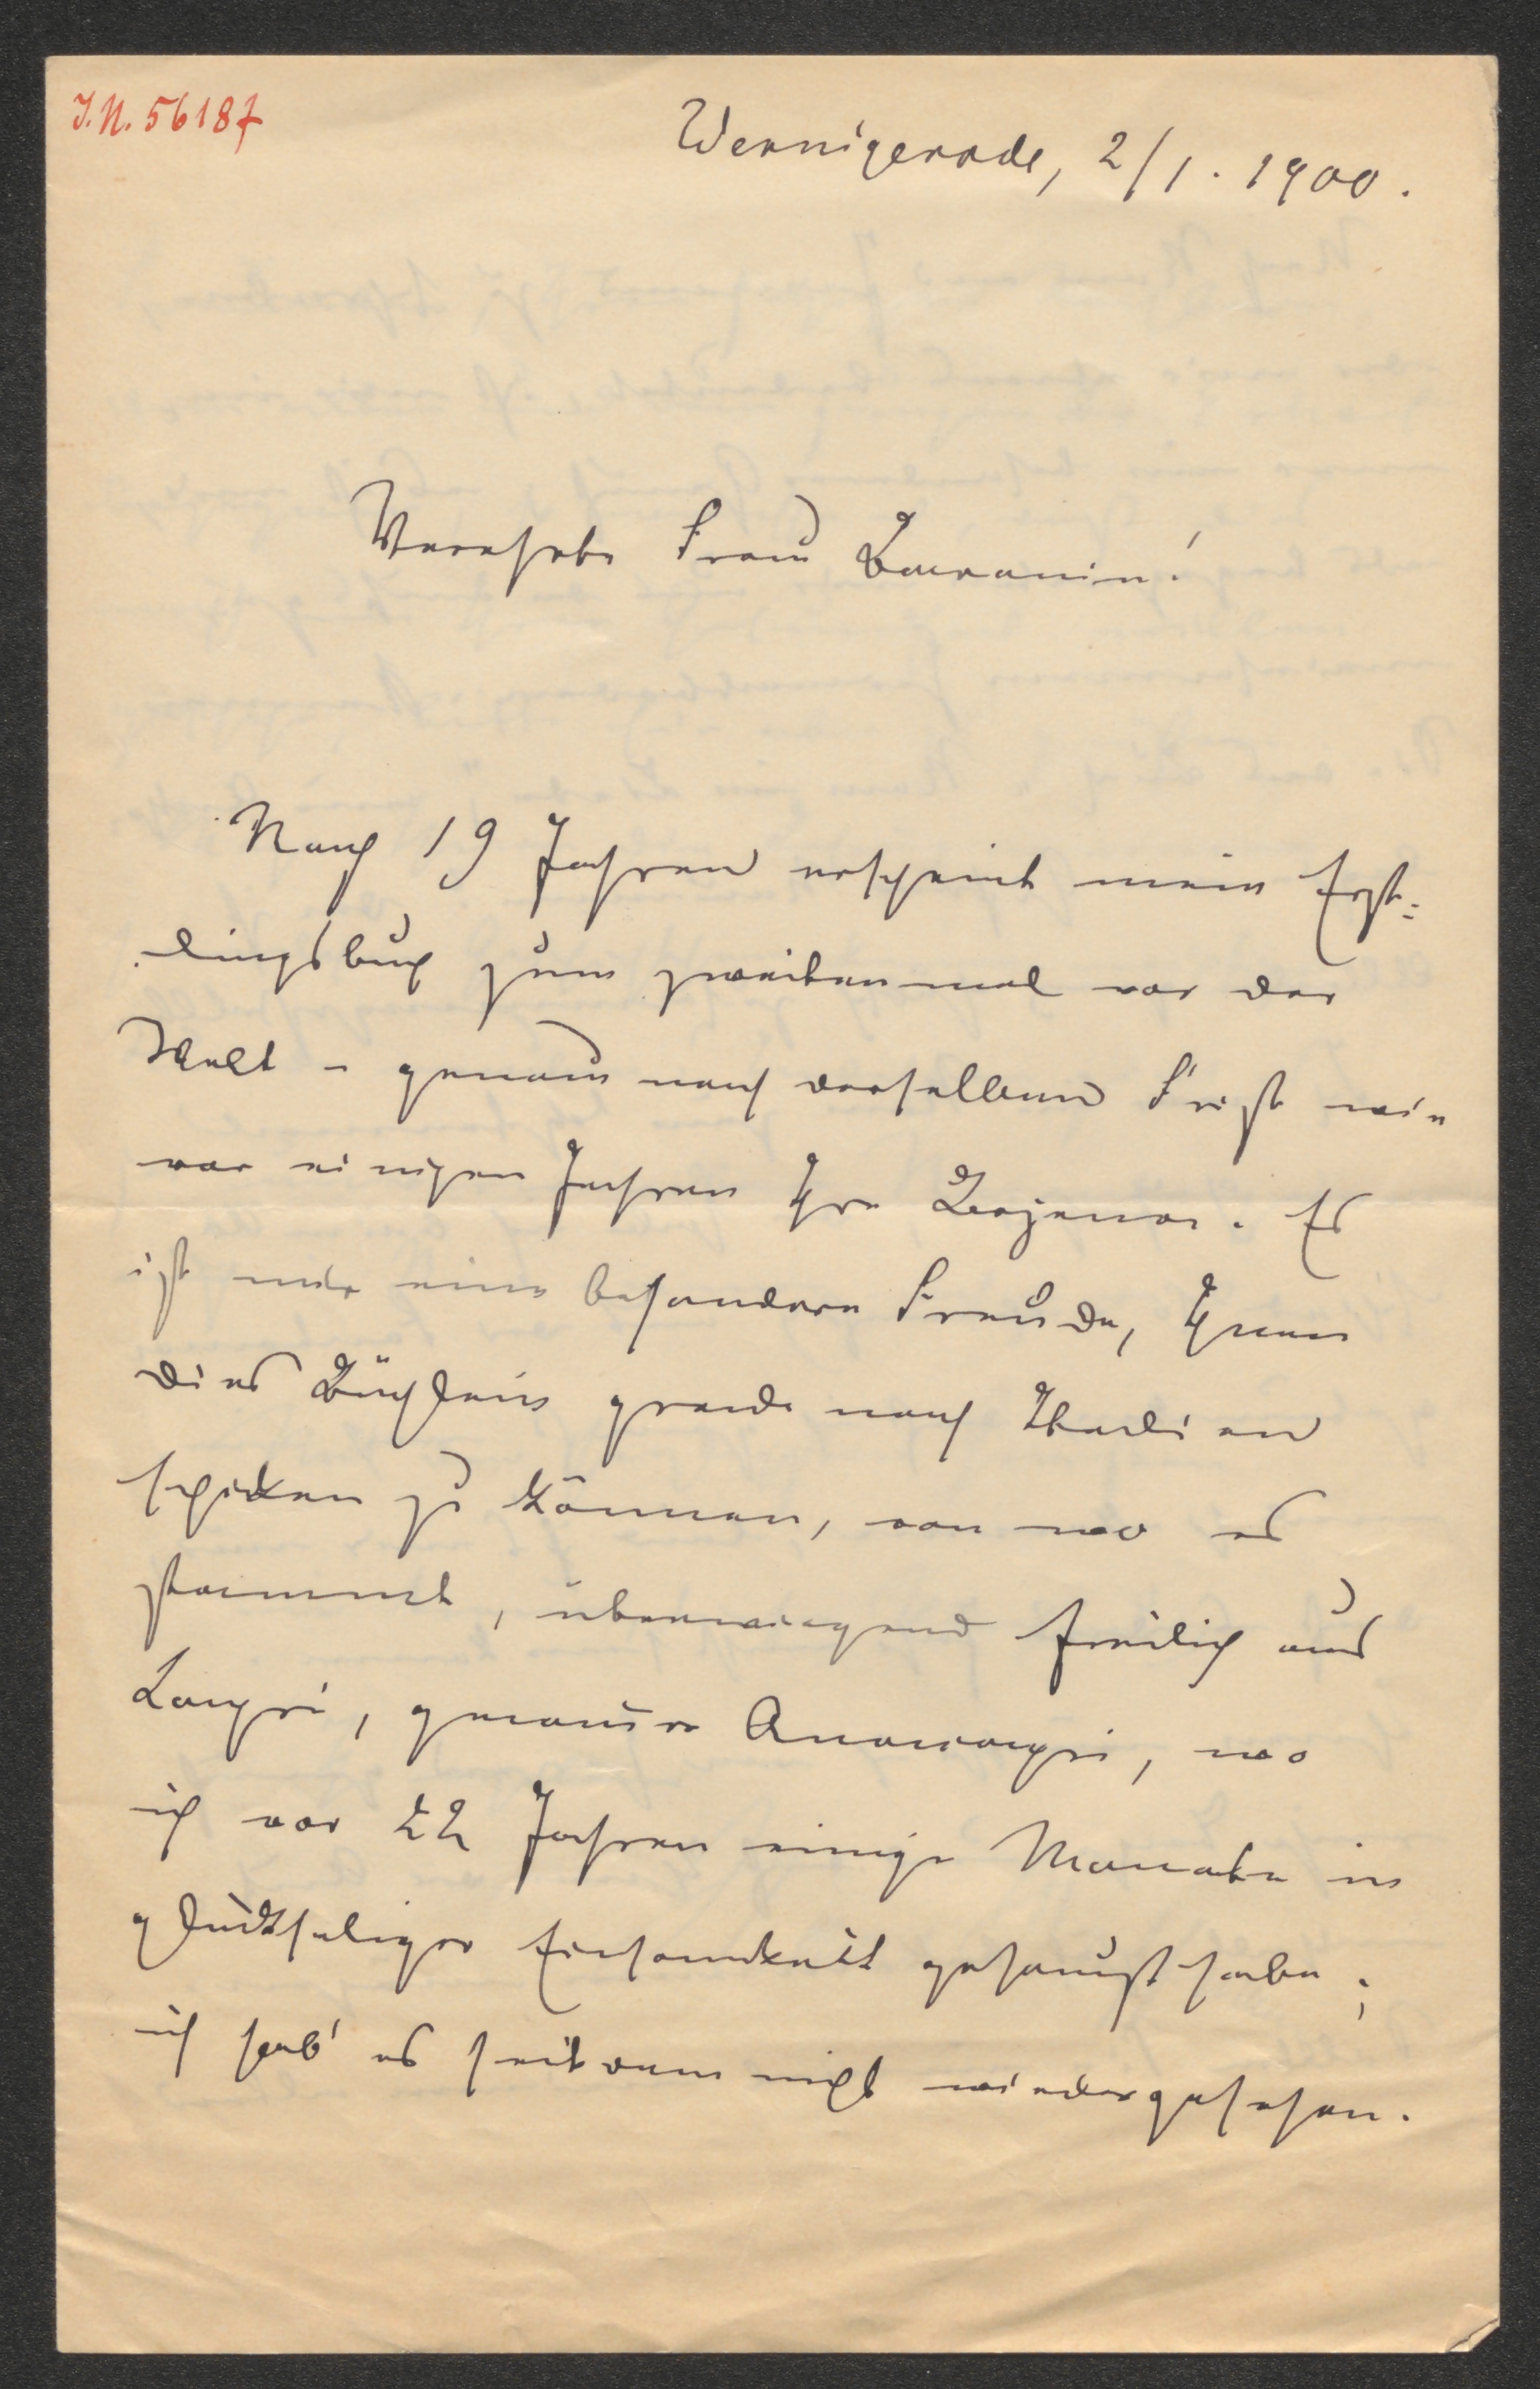 I.N. 56187
Wernigerode, 2/1. 1900.
Verehrte Frau Baronin!
Nach 19 Jahren erscheint mein Erst=
lingsbuch zum zweitenmal vor der
Welt – genau nach derselben Frist wie
vor einigen Jahren Ihre Bozena. Es
ist mir eine besondere Freude, Ihnen
dies Büchlein grade nach Italien
schicken zu können, von wo es
stammt, überwiegend freilich aus
Capri, genauer Anacapri, wo
ich vor 22 Jahren einige Monate in
glückseliger Einsamkeit gehaust habe;
ich hab' es seitdem nicht wiedergesehen.